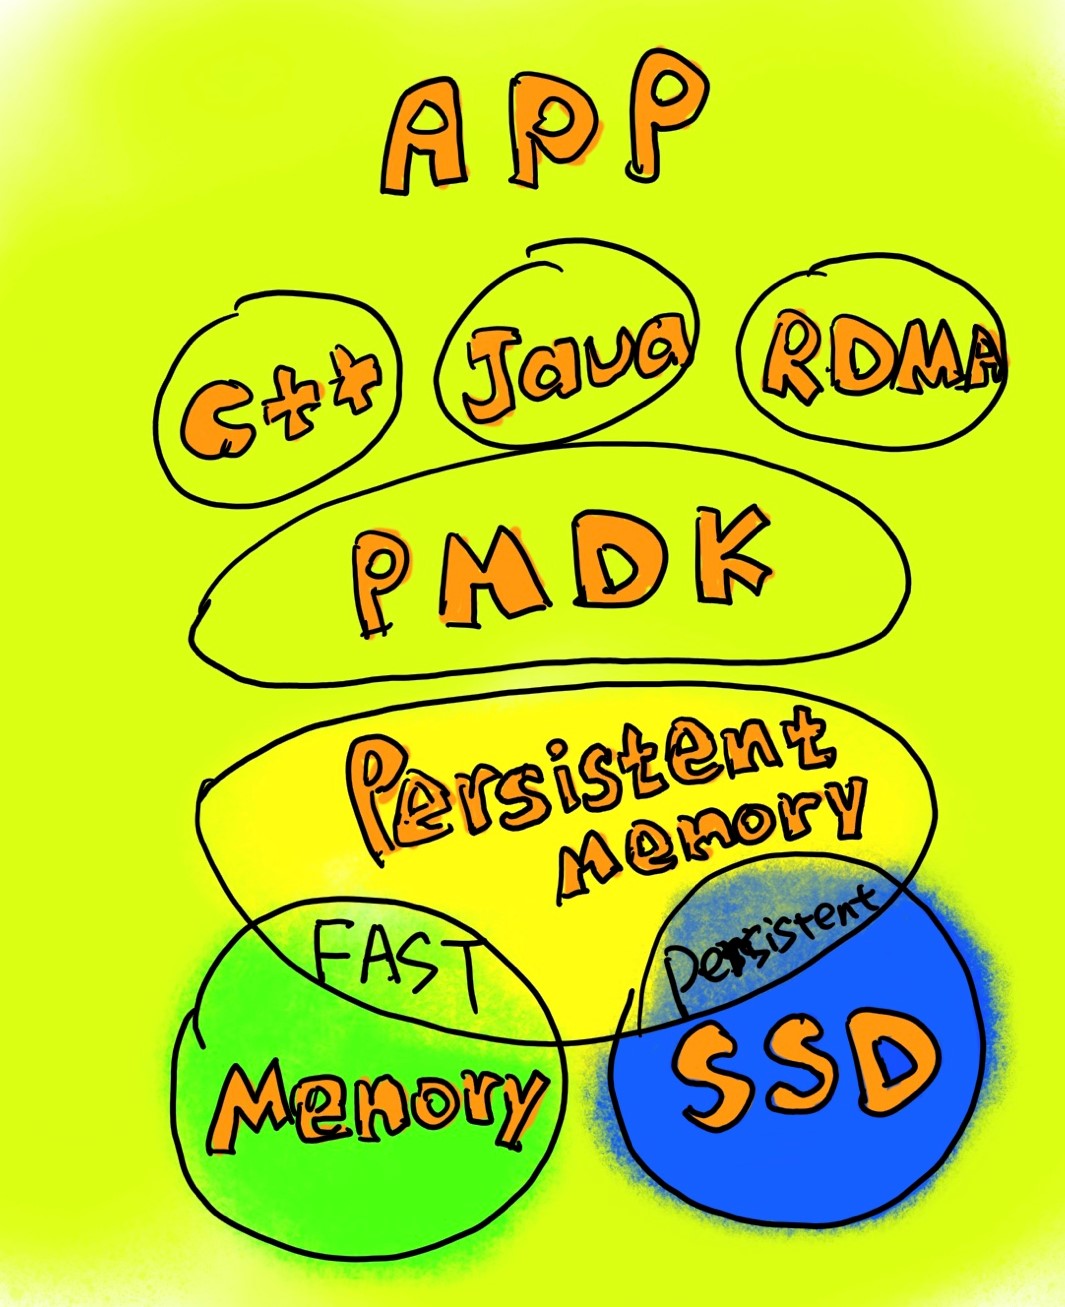 APP
C++ Java RDMA
PMDK
Persistent
Memory
FAST
persistent
Memory
SSD